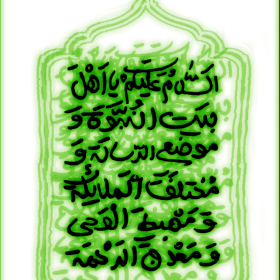 السلام عليكم يا اهل
بيت النبوة و
موضع الرسالة و
مختلف الملائكة
و مهبط الوحي
و معدن الرحمة